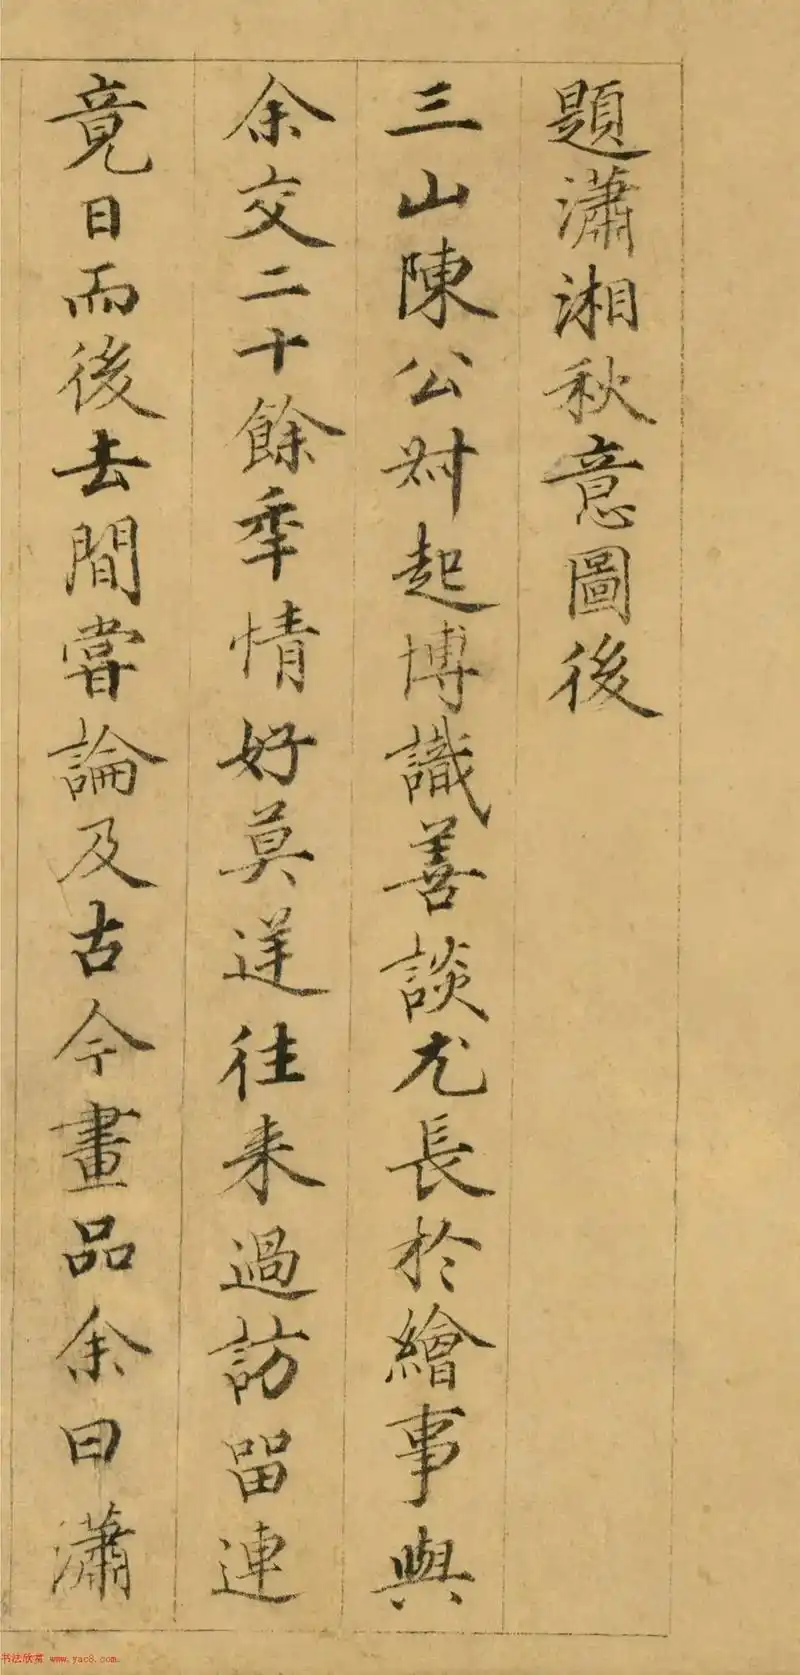 題瀟湘秋意圖後
三山陳公尌起博識善談尤長於繪事與
余交二十餘季情好莫逆往来過訪畱連
竟日而後去間甞論及古今畫品余曰瀟
书法欣赏 www.yac8.com